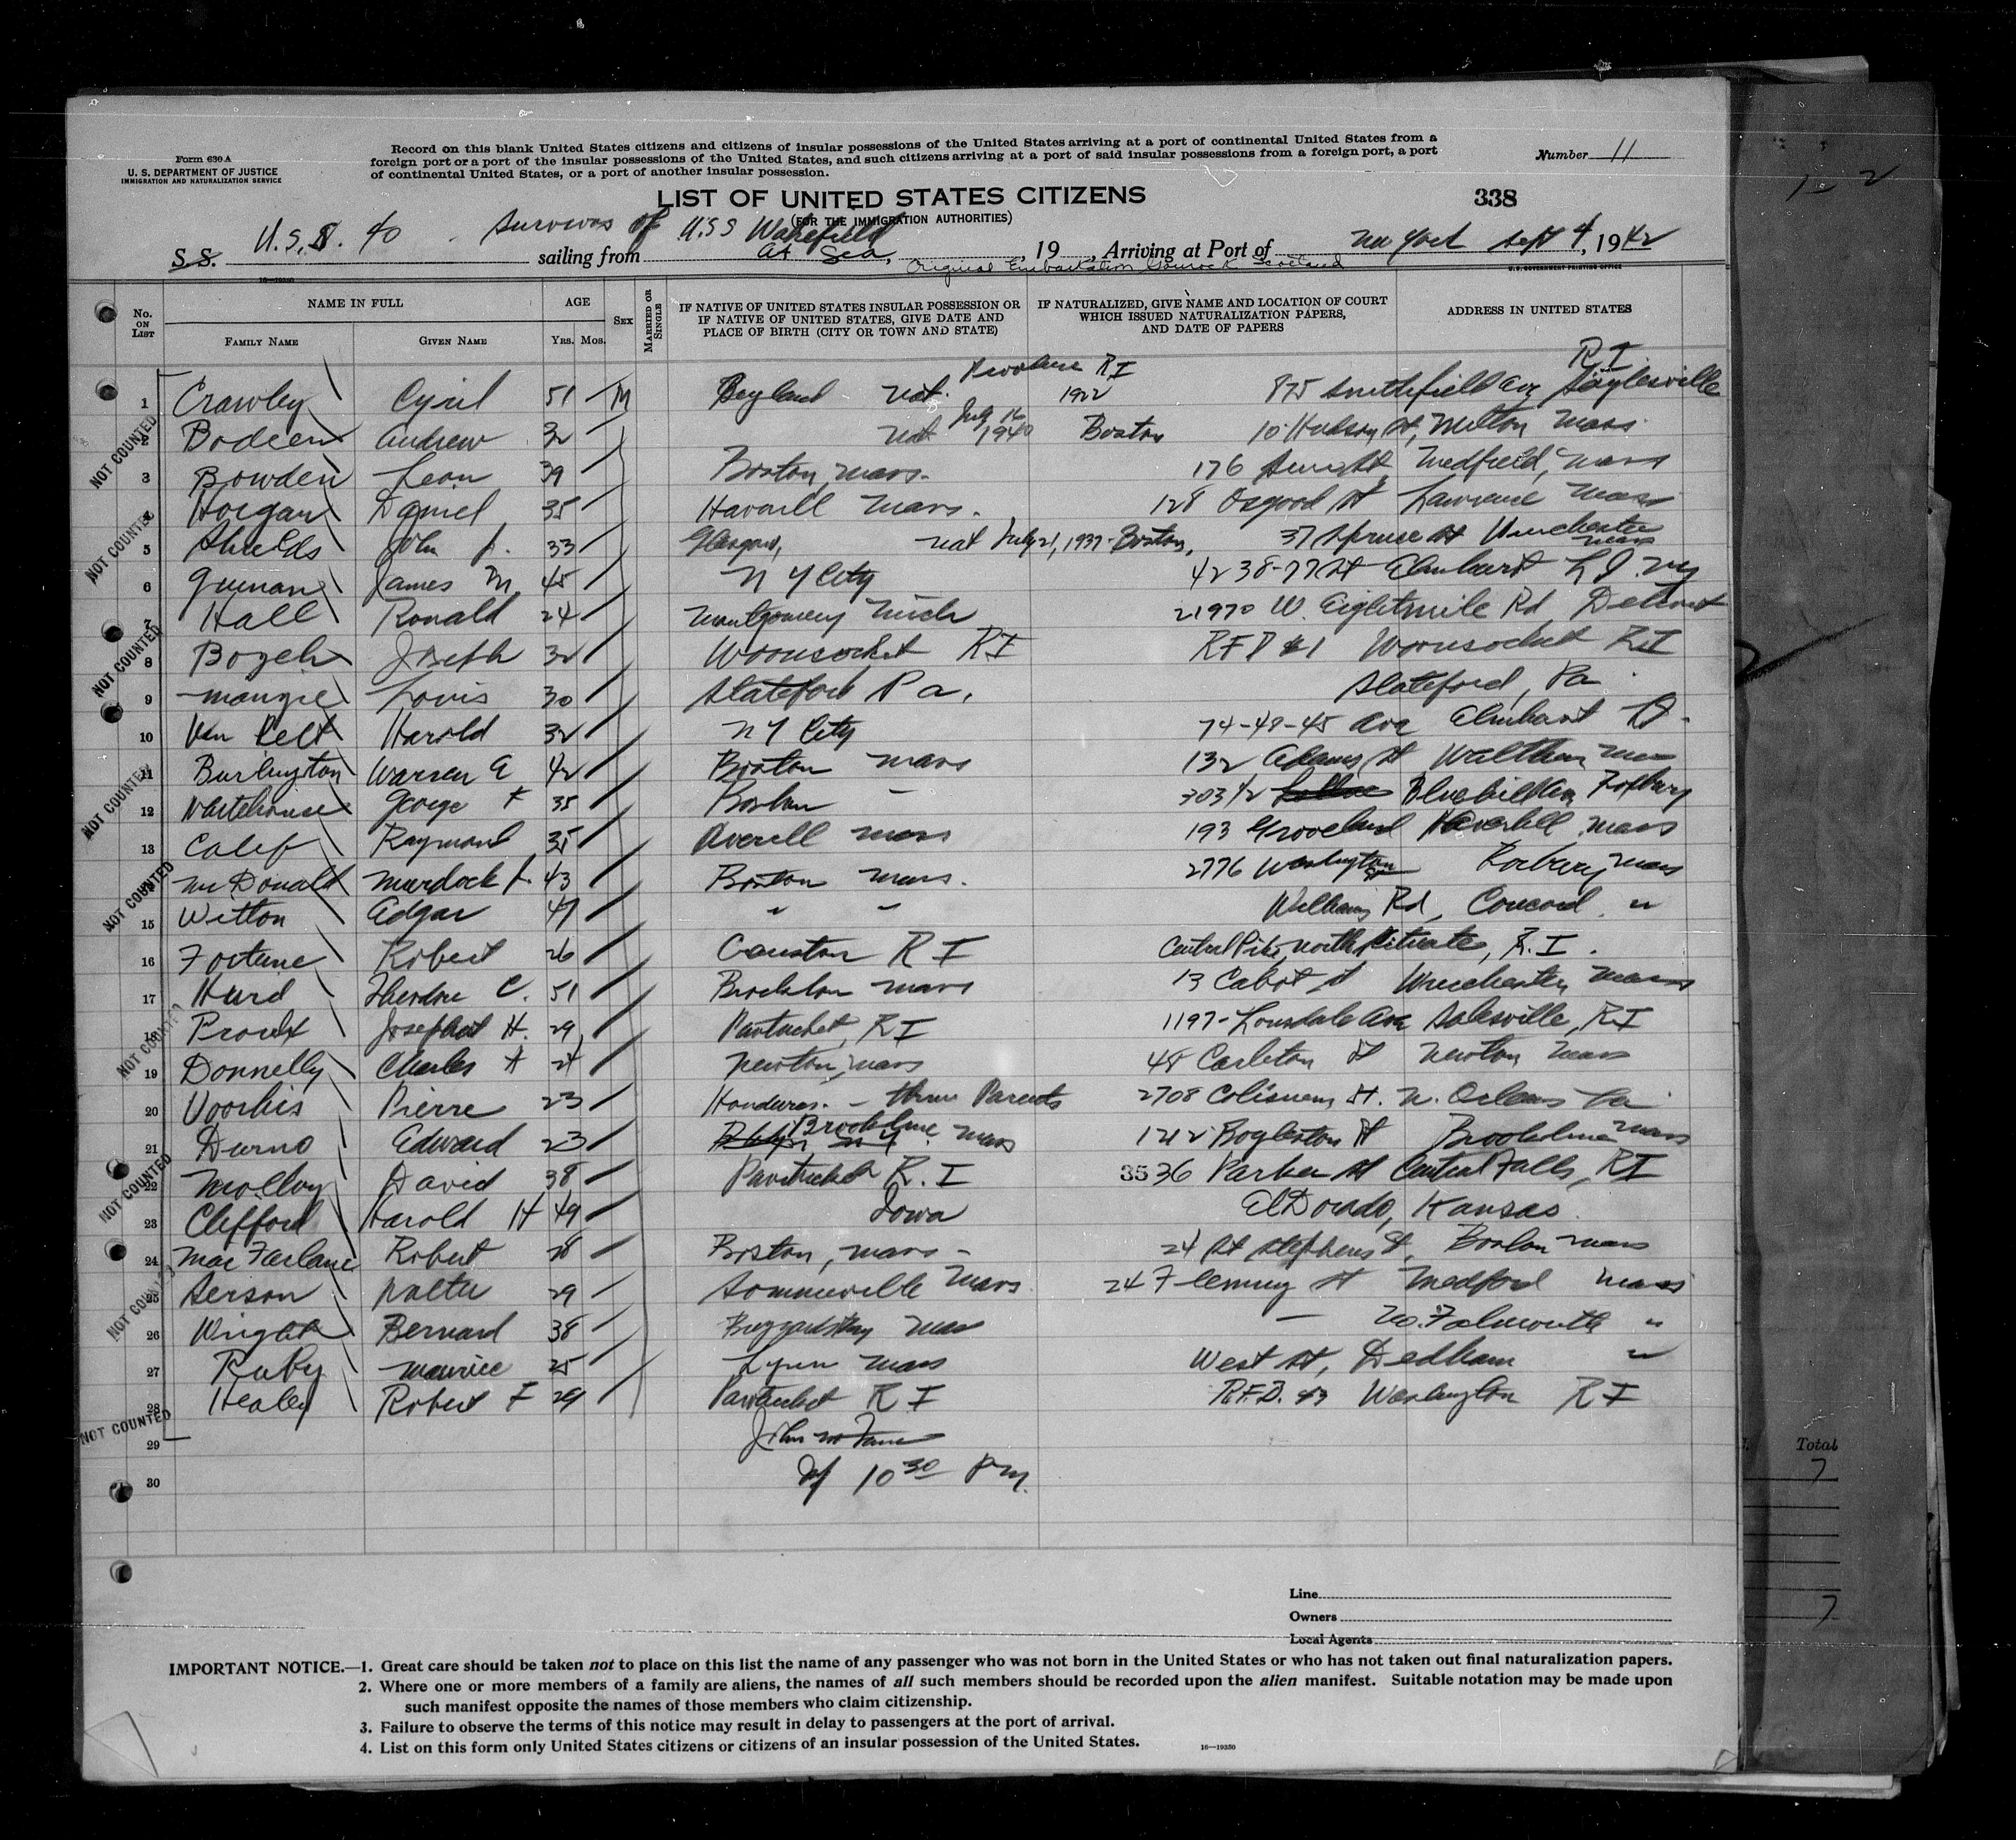 Form 630 A
U. S. DEPARTMENT OF JUSTICE
IMMIGRATION AND NATURALIZATION SERVICE
Record on this blank United States citizens and citizens of insular possessions of the United States arriving at a port of continental United States from a
foreign port or a port of the insular possessions of the United States, and such citizens arriving at a port of said insular possessions from a foreign port, a port
of continental United States, or a port of another insular possession.
Number 11
LIST OF UNITED STATES CITIZENS
(FOR THE IMMIGRATION AUTHORITIES)
338
S.S. U.S.S. 40 Survivors of U.S.S Wakefield
sailing from At Sea, , 19 , Arriving at Port of New York Sept 4, 1942
Original Embarkation Gourock Scotland
16—19350 U.S. GOVERNMENT PRINTING OFFICE
No. ON LIST
NAME IN FULL
FAMILY NAME
GIVEN NAME
AGE
YRS. MOS.
SEX
MARRIED OR SINGLE
IF NATIVE OF UNITED STATES INSULAR POSSESSION OR
IF NATIVE OF UNITED STATES, GIVE DATE AND
PLACE OF BIRTH (CITY OR TOWN AND STATE)
IF NATURALIZED, GIVE NAME AND LOCATION OF COURT
WHICH ISSUED NATURALIZATION PAPERS,
AND DATE OF PAPERS
ADDRESS IN UNITED STATES
1 Crawley Cyril 51 M England Nat. R I 1922 875 Smithfield Ave Saylesville R I
2 Bodeen Andrew 32 Nat July 16 1940 Boston 10 Hudson St, Milton Mass
3 Bowden Leon 39 Boston, Mass. 176 St Medfield, Mass
4 Horgan Daniel 35 Haverill Mass. 128 Osgood St Lawrence Mass
5 Shields John J. 33 Glasgow, Nat July 21, 1937 - Boston, 37 Spruce St Winchester Mass
6 Guinan James M. 45 N Y City 4238-77 St Elmhurst L I. NY
7 Hall Ronald 24 Montgomery Mich 21970 W. Eightmile Rd Detroit
8 Bozek Joseph 32 Woonsocket RI RFD #1 Woonsocket RI
9 Mangie Louis 30 Slateford Pa. Slateford, Pa
10 Van Pelt Harold 32 N Y City 74-48-45 Ave Elmhurst
11 Burlington Warren E 42 Boston Mass 132 Adams St Waltham Mass
12 Whitehouse George F 35 Boston – 303 1/2 Bluehill Ave Roxbury
13 Calef Raymond 35 Averell Mass 193 Groveland Haverhill Mass
14 McDonald Murdock J. 43 Boston Mass. 2776 Washington Roxbury Mass
15 Witton Edgar 47 " " Williams Rd, Concord "
16 Fortune Robert 26 Cranston R I Central Pike, North Scituate, R. I.
17 Hurd Theodore C. 51 Brockton Mass 13 Cabot St Winchester Mass
18 Proulx Josephat H. 29 Pawtucket, RI 1197- Lonsdale Ave Salesville, RI
19 Donnelly Charles A 24 Newton, Mass 48 Carleton St Newton Mass
20 Voorhis Pierre 23 Honduras. - thru Parents 2708 Coliseum St. N. Orleans La
21 Durno Edward 23 Brookline Mass 1212 Boylston St Brookline Mass
22 Molloy David 38 Pawtucket R. I 3536 Parker St Central Falls, RI
23 Clifford Harold H 49 Iowa El Dorado, Kansas
24 MacFarlane Robert 28 Boston, Mass - 24 St Stephens St, Boston Mass
25 Serson Walter 29 Sommerville Mass 24 Flemming St Medford Mass
26 Wright Bernard 38 Mass – No. Falmouth "
27 Ruby Maurice 25 Lynn Mass West St, Dedham "
28 Healey Robert F 29 Pawtucket R I R.F.D. #3 Washington R I
29 John
30 10 30 PM.
NOT COUNTED
NOT COUNTED
NOT COUNTED
NOT COUNTED
NOT COUNTED
NOT COUNTED
NOT COUNTED
NOT COUNTED
NOT COUNTED
Total
7
7
Line
Owners
Local Agents
IMPORTANT NOTICE.—1. Great care should be taken not to place on this list the name of any passenger who was not born in the United States or who has not taken out final naturalization papers.
2. Where one or more members of a family are aliens, the names of all such members should be recorded upon the alien manifest. Suitable notation may be made upon
such manifest opposite the names of those members who claim citizenship.
3. Failure to observe the terms of this notice may result in delay to passengers at the port of arrival.
4. List on this form only United States citizens or citizens of an insular possession of the United States.
16—19350